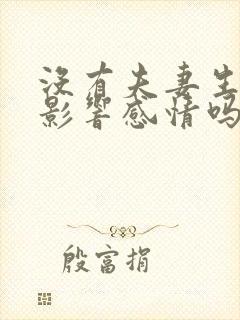 没有夫妻生
影响感情吗
殷富捐